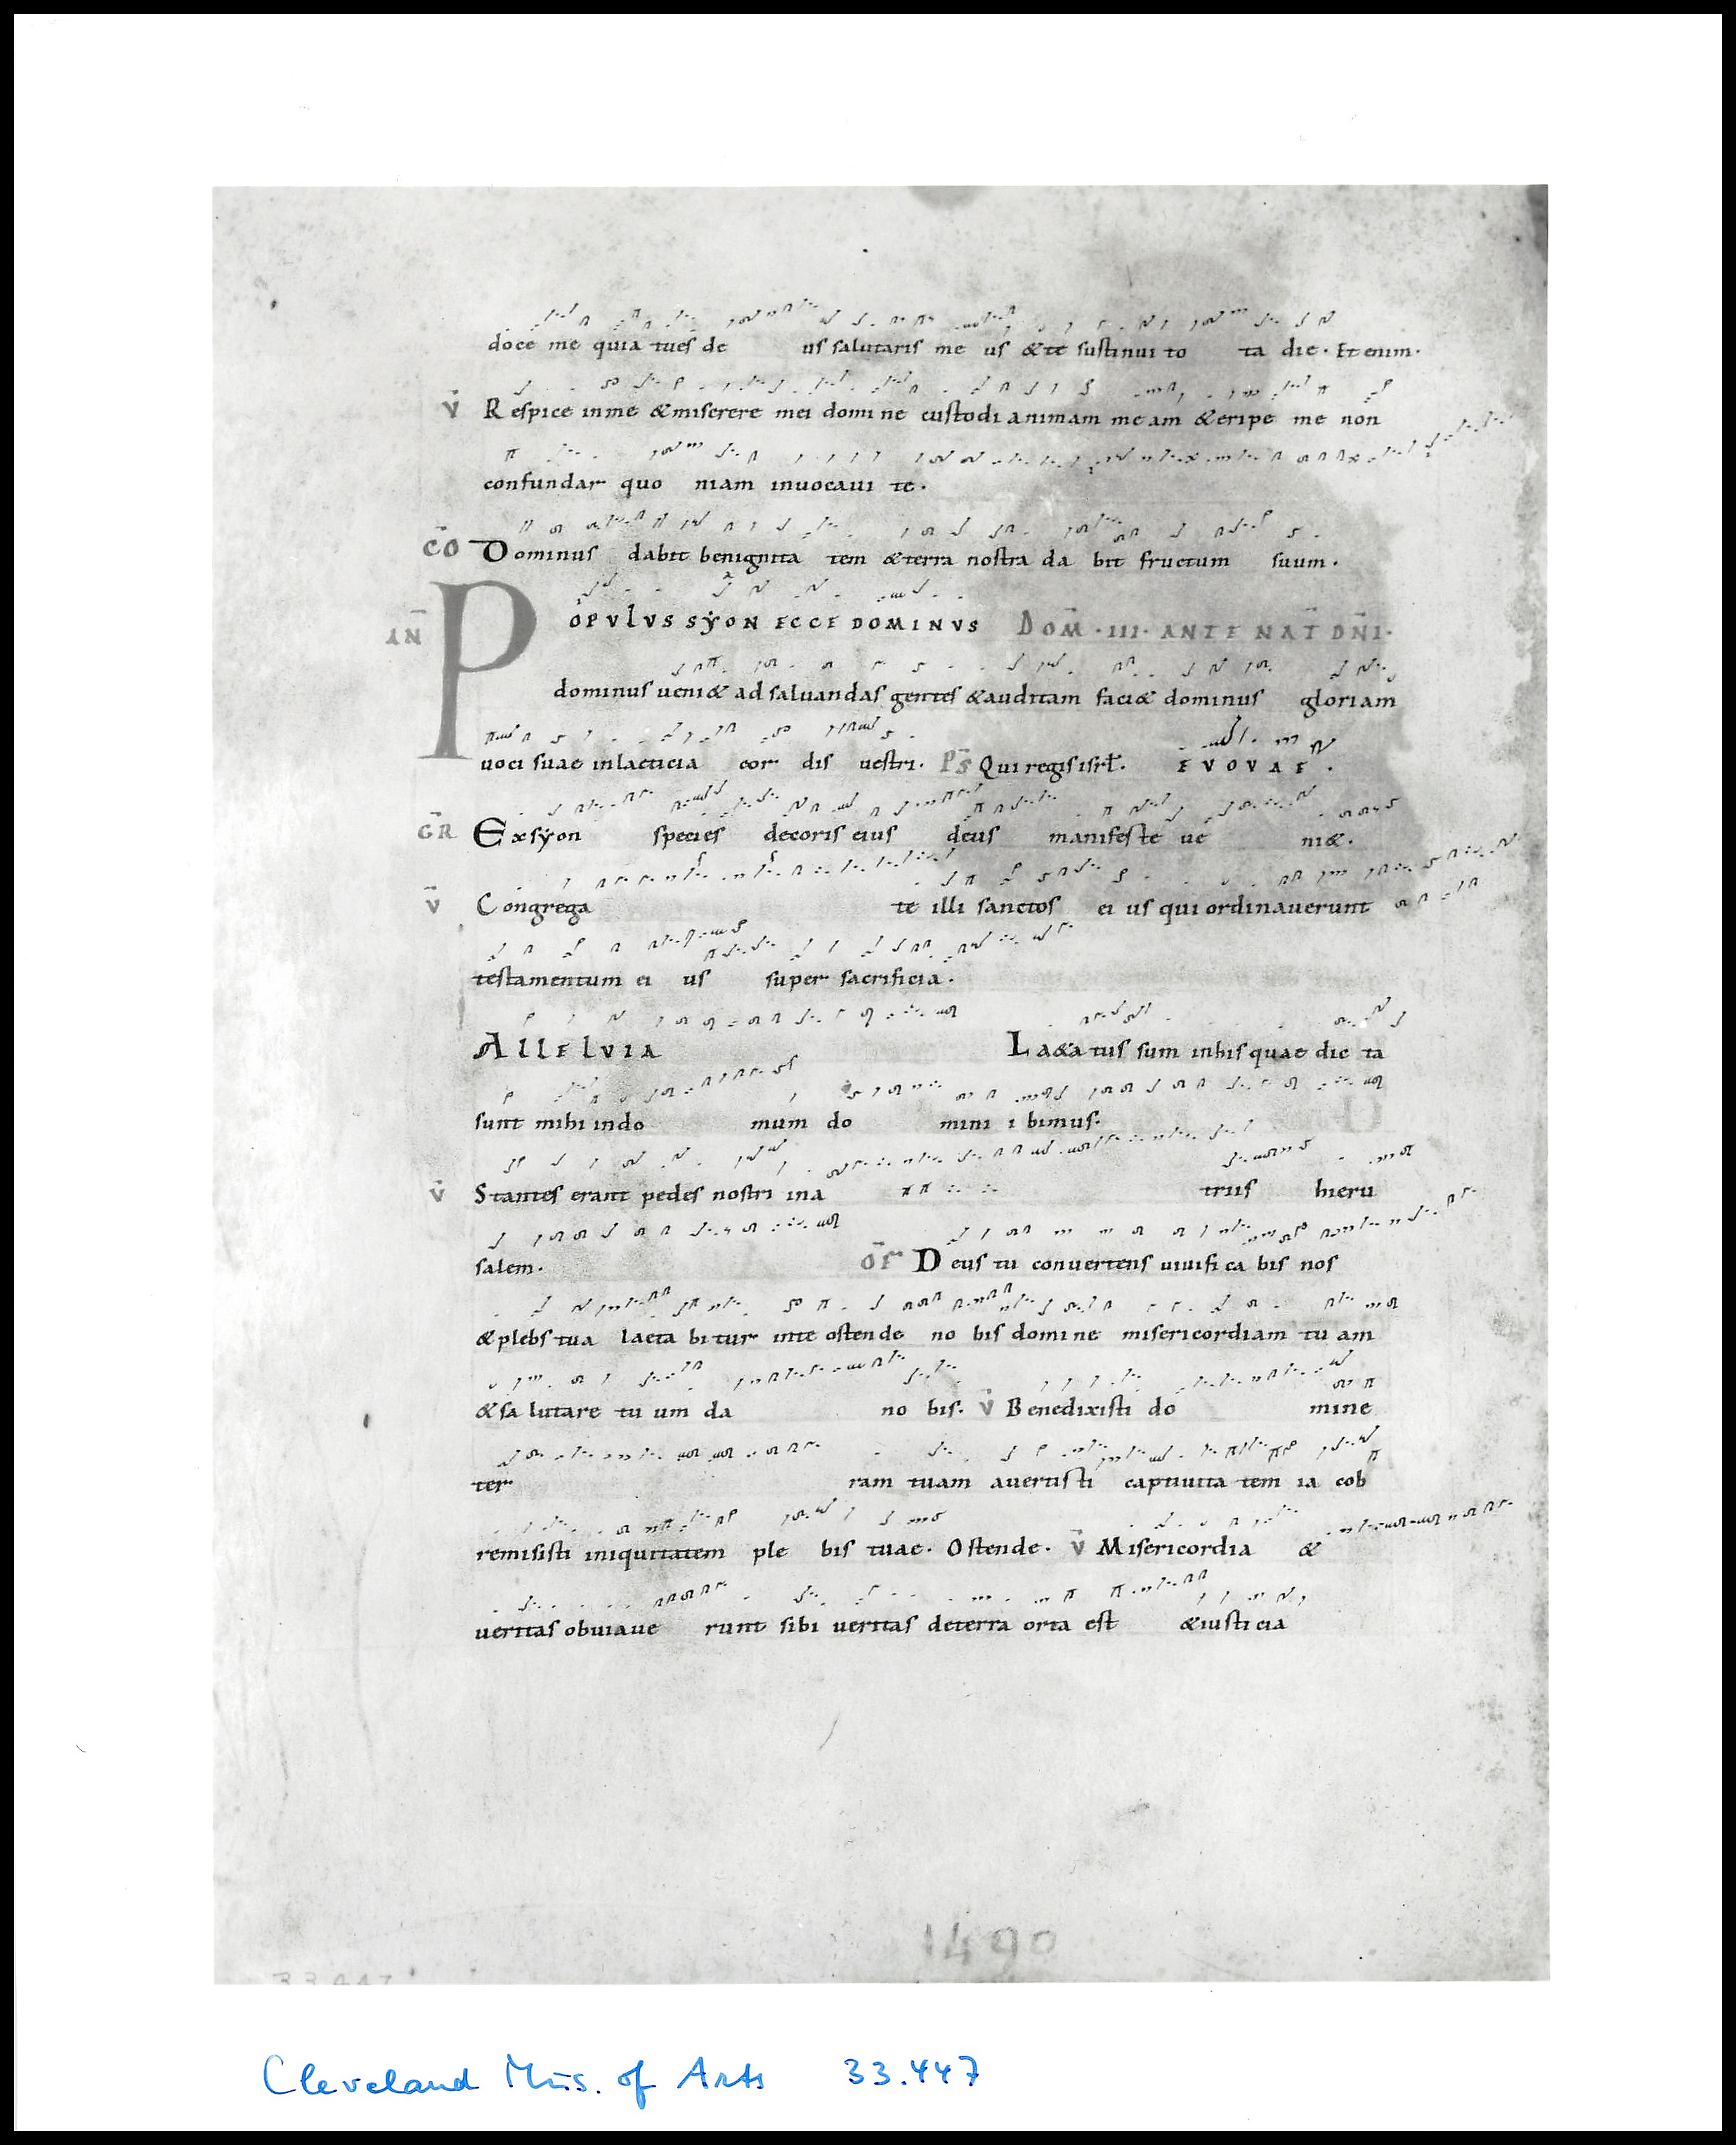 doce me quia tues de us salutaris me us &te sustinui to ta die. Et enim.
V̄ Respice inme &miserere mei domine custodi animam meam &eripe me non
confundar quo niam inuocaui te.
C̄O Dominus dabit benignita tem &terra nostra da bit fructum suum.
IN̄ POPVLVS SẎON ECCE DOMINVS DOM̄ .III. ANTE NAT̄ DN̄I.
dominus ueni& ad saluandas gentes &auditam faci& dominus gloriam
uoci suae inlaeticia cor dis uestri. Ps̄ Qui regis isrl̄. E V O V A E.
ḠR Exsẏon species decoris eius deus manifeste ue ni&.
V̄ Congrega te illi sanctos ei us qui ordinauerunt
testamentum ei us super sacrificia.
ALLELVIA La&a tus sum inhis quae dic ta
sunt mihi indo mum do mini i bimus.
V̄ Stantes erant pedes nostri ina triis hieru
salem. ŌF Deus tu conuertens uiuifi ca bis nos
&plebs tua laeta bi tur inte ostende no bis domine misericordiam tu am
&sa lutare tu um da no bis. V̄ Benedixisti do mine
ter ram tuam auertisti captiuita tem ia cob
remisisti iniquitatem ple bis tuae. Ostende. V̄ Misericordia &
ueritas obuiaue runt sibi ueritas deterra orta est &iusti cia
1490
33.447
Cleveland Mus. of Arts 33.447